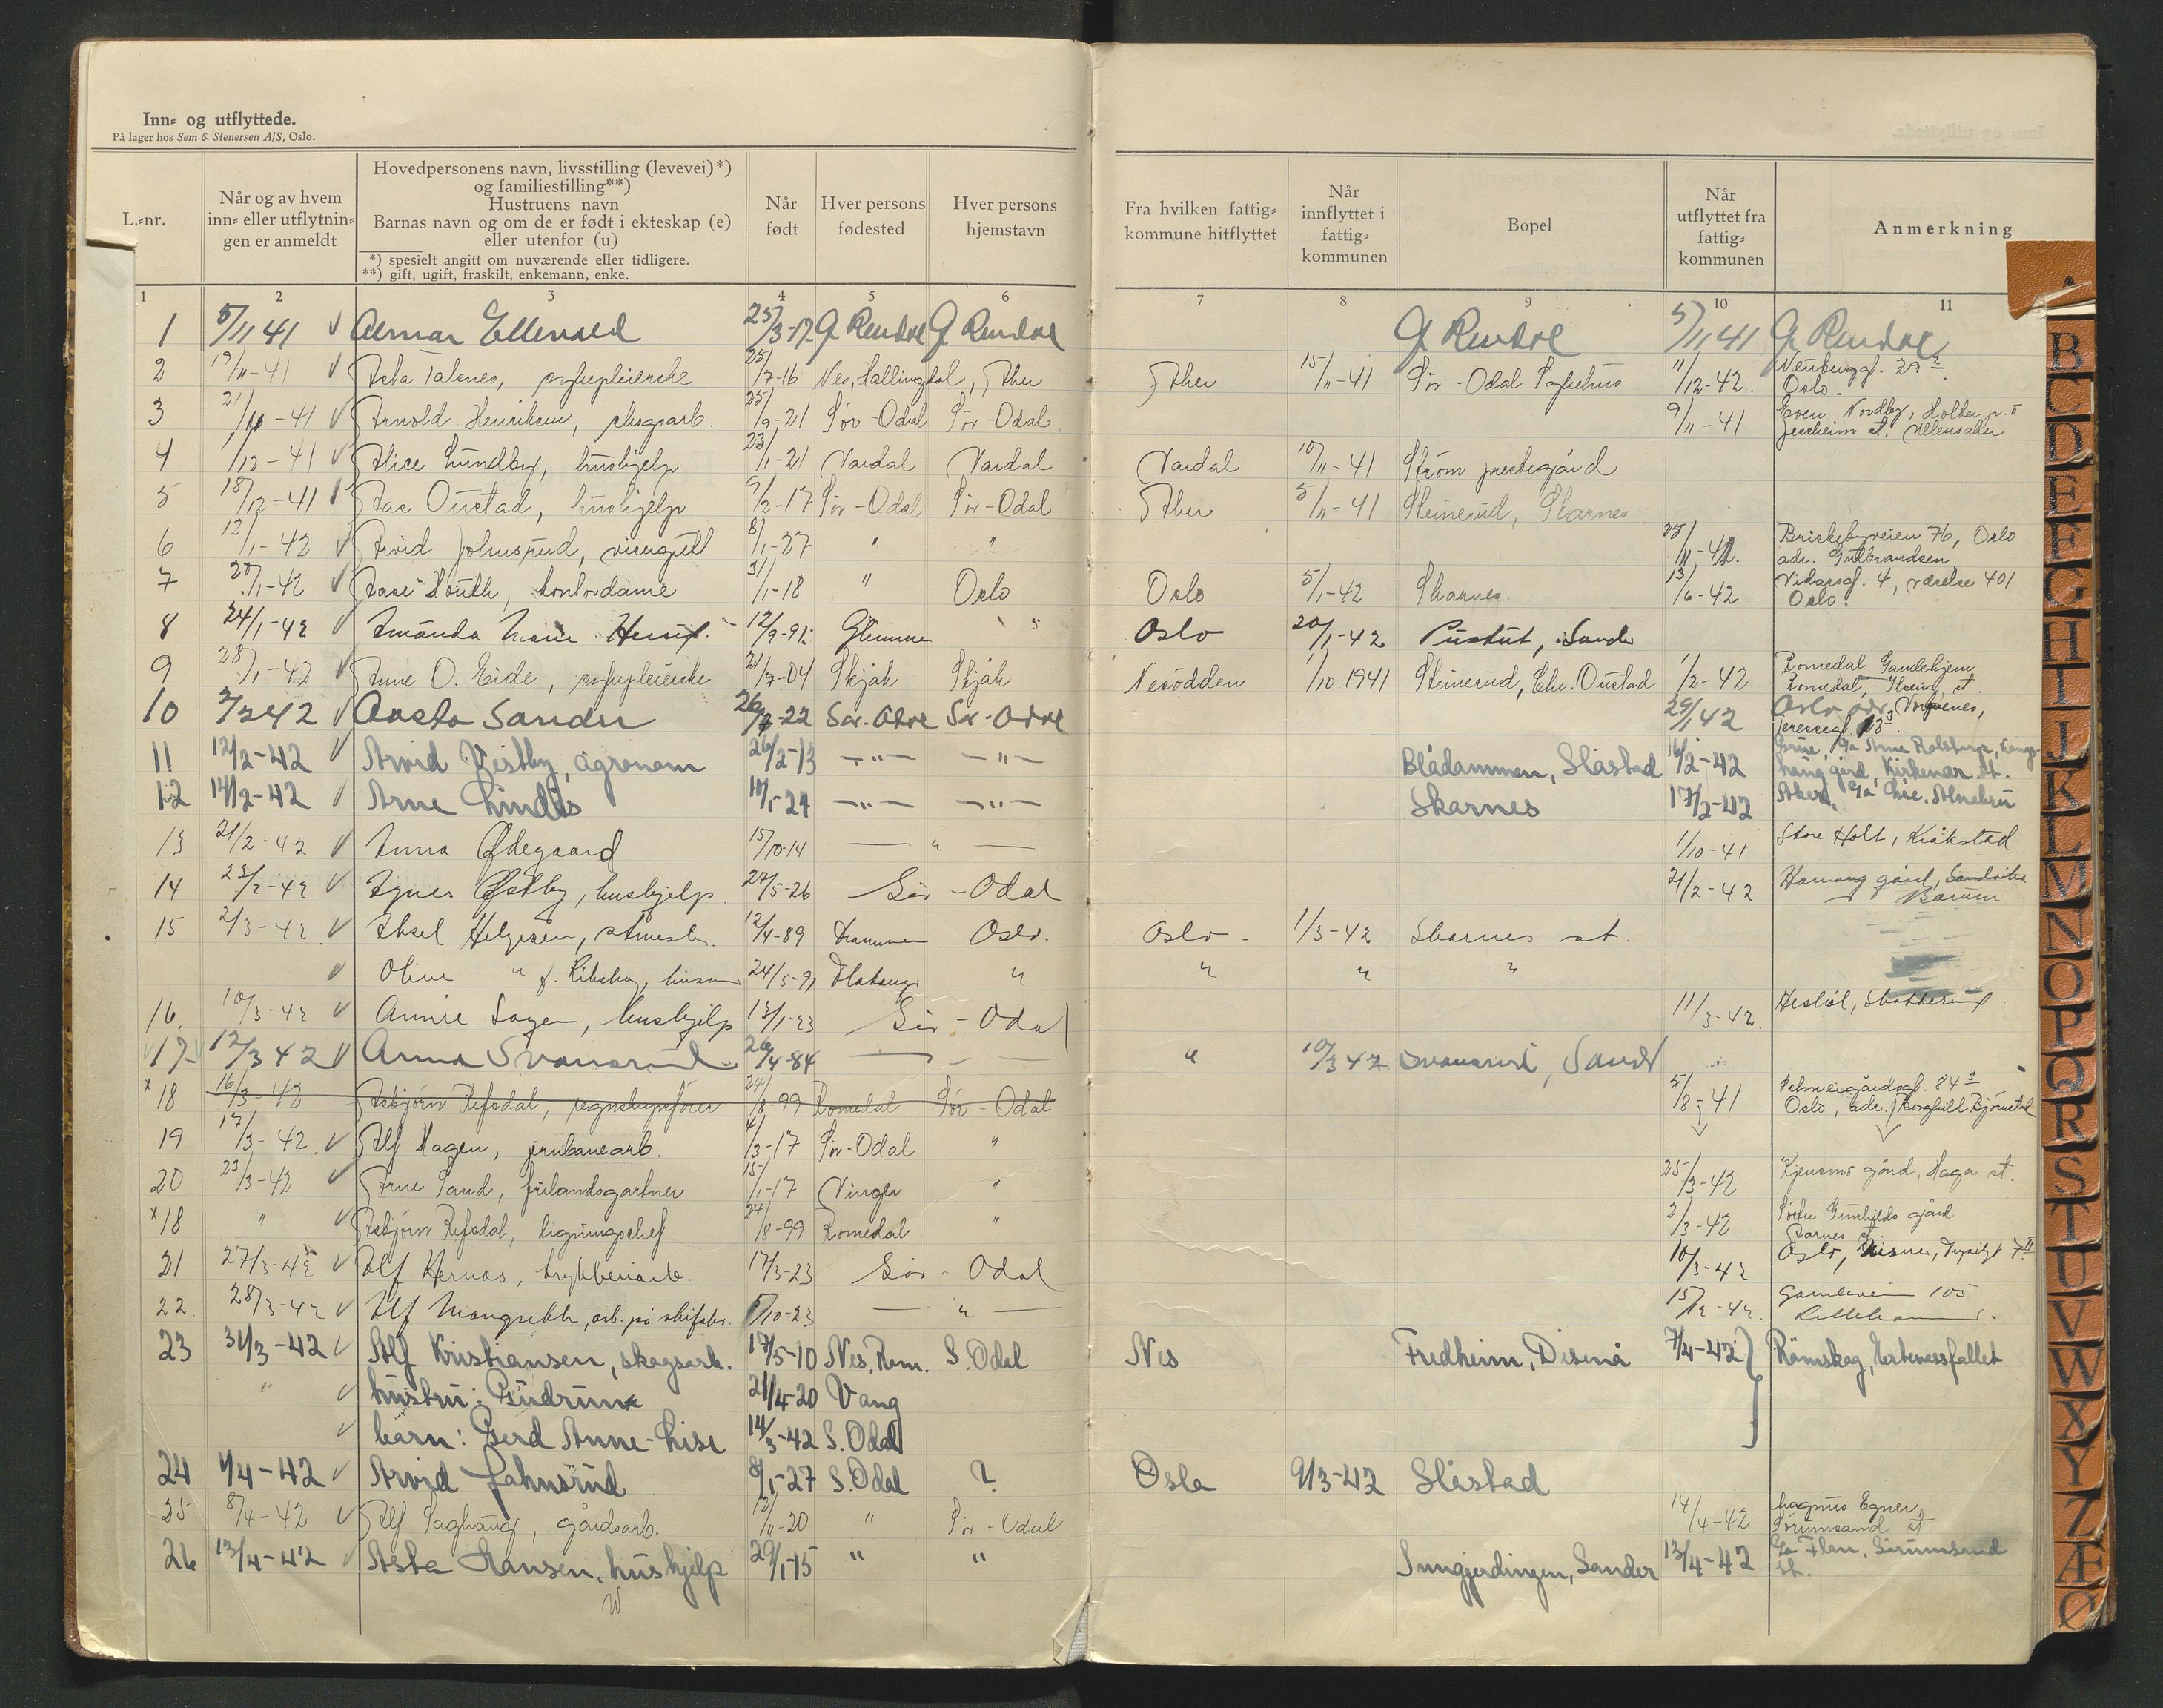 Inn= og utflyttede.
På lager hos Sem & Stenersen A/S, Oslo.
L.=nr.
Når og av hvem inn= eller utflytnin= gen er anmeldt
Hovedpersonens navn, livsstilling (levevei)*)
og familiestilling**)
Hustruens navn
Barnas navn og om de er født i ekteskap (e)
eller utenfor (u)
*) spesielt angitt om nuværende eller tidligere.
**) gift, ugift, fraskilt, enkemann, enke.
Når født
Hver persons fødested
Hver persons hjemstavn
Fra hvilken fattig= kommune hitflyttet
Når innflyttet i fattig= kommunen
Bopel
Når utflyttet fra fattig= kommunen
Anmerkning
1 2 3 4 5 6 7 8 9 10 11
1 5/11 41 Almar Ellevold 25/3-17 G Rendal G Rendal G Rendal 5/11 41 G Rendal
2 19/11-41 Asta 25/7-16 Nes, Hallingdal, Aker Aker 15/11-41 Sør-Odal Sykehus 11/12-42. Oslo.
3 21/11-41 Arnold Henriksen, skogsarb. 25/9-21 Sør-Odal Sør-Odal 9/11-41 Even Nordby, Holter p.å
Jessheim st. Ullensaker
4 1/12-41 Alice Lundby, hushjelp 23/1-21 Vardal Vardal Vardal 10/11-41 Strøm prestegård
5 18/12-41 Aase Oustad, hushjelp 9/2-17 Sør-Odal Sør-Odal Aker 5/11-41 Steinerud, Skarnes
6 12/1-42 Arvid Johnsrud, visergutt 8/1-27 " " 25/11-41. Briskebyveien 76, Oslo
adr. Gulbrandsen
7 20/1-42 Aase Houth, kontordame 31/1-18 " Oslo Oslo 5/1-42 Skarnes. 13/6-42 Vidarsgt. 4, værelse 401
Oslo.
8 24/1-42 Amanda Marie 12/9-91 Glemmen " Oslo 20/1-42 Pustut, Sander
9 28/1-42 Anne O. Eide, sykepleierske 21/7-04 Skjåk Skjåk Nesodden 1/10 1941 Steinerud, Chr. Oustad 1/2-42 Romedal Gamlehjem
Romedal, Ilseng st.
10 2/2 42 Aasta Sander 26/7-22 Sør-Odal Sør-Odal 29/1 42 Oslo adr.
11 12/2-42 Arvid Vestby, agronom 26/2-13 -"- -"- Blådammen, Slåstad 16/2-42 Kirkenær st.
12 14/2-42 Arne Lindås 10/1-24 -"- -"- Skarnes 17/2-42 Aker,
13 21/2-42 Anna Ødegaard 15/10-14 — " — 1/10-41 Store Holt, Kråkstad
14 23/2-42 Agnes Østby, hushjelp 27/5-26 Sør-Odal 21/2-42 Hamang gård, Sandvika
Bærum
15 2/3-42 Aksel Helgesen, 12/4-89 Drammen Oslo. Oslo - 1/3-42 Skarnes st.
Oline " f. 24/5-91 Flatanger " " " "
16. 10/3-42 Annie Sagen, hushjelp 13/1-23 Sør-Odal 11/3-42
17 12/3 42 Anna Svansrud 26/4-84 — - — " 10/3 42 Svansrud, Sander
x 18 16/3-42 Asbjørn Refsdal, regnskapsfører 24/8-99 Romedal Sør-Odal 5/8-41 84
Oslo, adr. Borghild Bjørnstad
19 17/3-42. Alf Hagen, jernbanearb. 4/3-17 Sør-Odal "
20 23/3-42 Arne Sand, frilandsgartner 15/1-17 Vinger " 25/3-42 gård, Haga st.
x 18 " Asbjørn Refsdal, ligningschef 24/8-99 Romedal " 2/3-42 gård
Skarnes st.
21 27/3-42 Alf Hernæs, trykkeriarb. 17/3-23 Sør-Odal 10/3-42 Oslo,
22. 28/3-42 Alf 1/10-23 — " — 15/12-42 Gamleveien 105
Lillehammer.
23 31/3-42 Alf Kristiansen, skogsarb. 17/5-10 Nes, Rom. S. Odal Nes Fredheim, Disenå 7/4-42 Rømskog,
" hustru: Gudrun 21/4-20 Vang
barn: Gerd Anne-Lise 14/3-42 S. Odal
24 1/4-42 Arvid Johnsrud 8/1-27 S. Odal ? Oslo 9/3-42 Slåstad
25 8/4-42 Alf Saghaug, gårdsarb. 12/11-20 " Sør-Odal 14/4-42 Magnus Egner,
Sørumsand st.
26 13/4-42 Asta Hansen, hushjelp 29/1-15 " " Smugjerdingen, Sander 13/4-42 Sørumsand
st.
B
C
D
E
F
G
H
I
J
K
L
M
N
O
P
Q
R
S
T
U
V
W
X
Y
Z
Æ
Ø